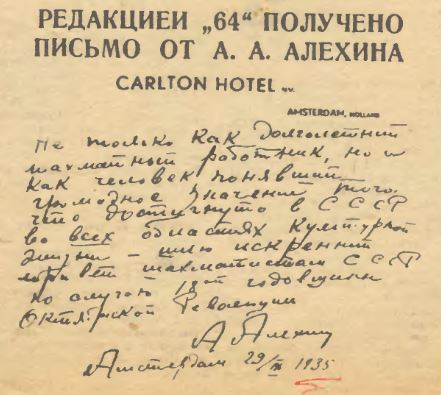 РЕДАКЦИЕЙ „64“ ПОЛУЧЕНО
ПИСЬМО ОТ А. А. АЛЕХИНА
CARLTON HOTEL N.V.
AMSTERDAM, HOLLAND
Не только как долголетний
шахматный работник, но и
как человек понявший
громадное значение того,
что достигнуто в СССР
во всех областях культурной
жизни – шлю искренний
привет шахматистам СССР
по случаю 18ой годовщины
Октябрьской Революции
А Алехин
Амстердам 29/X 1935